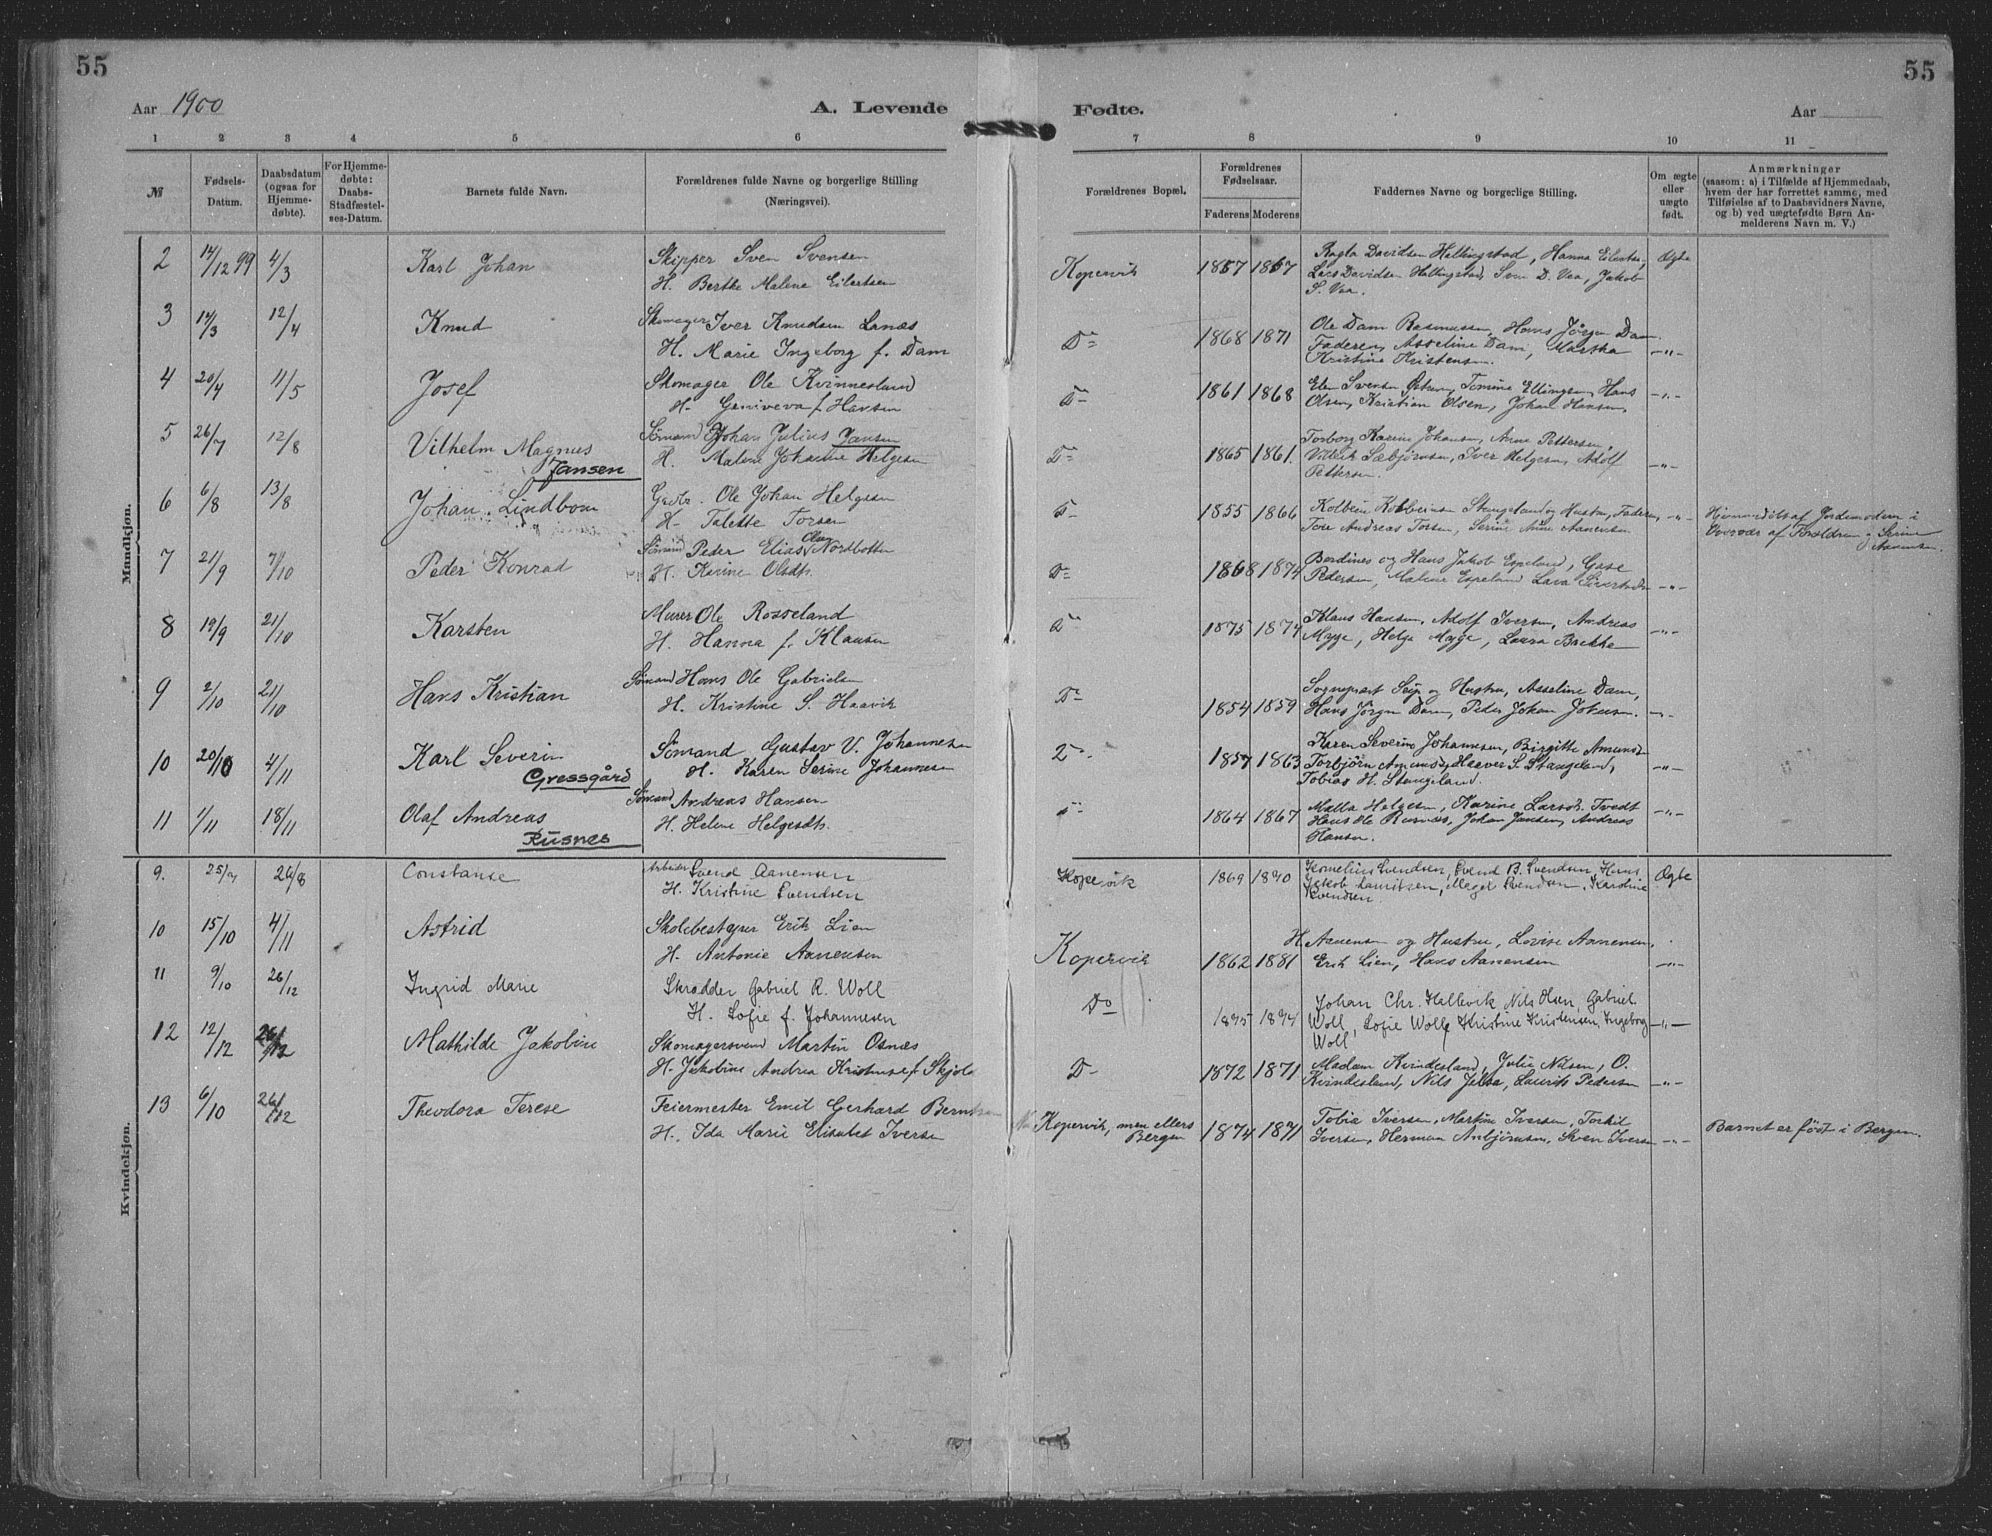 55
55
Aar 1900
A. Levende
Fødte.
Aar
1 2 3 4 5 6 7 8 9 10 11
№
Fødsels-
Datum.
Daabsdatum
(ogsaa for
Hjemme-
døbte).
For Hjemme-
døbte:
Daabs-
Stadfæstel-
ses-Datum.
Barnets fulde Navn.
Forældrenes fulde Navne og borgerlige Stilling
(Næringsvei).
Forældrenes Bopæl.
Forældrenes
Fødselsaar.
Faderens Moderens
Faddernes Navne og borgerlige Stilling.
Om ægte
eller
uægte
født.
Anmærkninger
(saasom: a) i Tilfælde af Hjemmedaab,
hvem der har forrettet samme, med
Tilføielse af to Daabsvidners Navne,
og b) ved uægtefødte Børn An-
melderens Navn m. V.)
Mandkjøn.
2 14/12 99 4/3 Karl Johan
Skipper Sven Svensen
H. Berthe Malene Eilertsen
Kopervik 1857 1867
Ragla Davidsen Hallingstad, Hanna Eilertsen,
Lars Davidsen Hallingstad, Sven D. Vea, Jakob
S. Vea.
Ægte
3 14/3 12/4 Knud
Skomager Iver Knudsen Lanæs
H. Marie Ingeborg f. Dam
Do 1868 1871
Ole Dam Rasmussen, Hans Jørgen Dam
Faderen, Asseline Dam, Martha
Kristine Kristensen.
—"—
4 20/4 11/5 Josef
Skomager Ole Kvinnesland
H. Genoveva f. Hansen
Do 1861 1868
Elen Svensen, Tomine Ellingsen, Hans
Olsen, Kristian Olsen, Johan Hansen,
—"—
5 26/7 12/8 Vilhelm Magnus
Jansen
Sømand Johan Julius Jansen
H. Malene Johanne Helgesen
Do 1865 1861.
Torborg Karine Johansen, Anne Pettersen,
Villeik Sæbjørnsen, Iver Helgesen, Adolf
Pettersen.
—"—
6 6/8 13/8 Johan Lindbom
Ole Johan Helgesen
H. Talette Torsen
Do 1855 1866
Kolbein Kolbeinsen Stangeland og Hustru, Faderen,
Tore Andreas Torsen, Serine Anne Aanensen
—"—
Hjemmedøbt af Jordemoderen i
Overvær af Forældrene og Serine
Aanensen.
7 21/9 7/10 Peder Konrad
Sømand Peder Elias Olsen Nordbotten
H. Karine Olsdtr.
Do 1868 1874
Berdines og Hans Jakob Espeland,
Pedersen, Malene Espeland
—"—
8 19/9 21/10 Karsten
Murer Ole Rosseland
H. Hanna f. Klausen
Do 1875 1874
Klaus Hansen, Adolf Iversen, Andreas
Mygge, Helga Mygge, Laura Brekke
—"—
9 2/10 21/10 Hans Kristian
Sømand Hans Ole Gabrielsen
H. Kristine S. Haavik
Do 1854 1859
Sogneprest Seip og Hustru, Asseline Dam,
Hans Jørgen Dam, Peder Johan Johnsen.
—"—
10 20/10 4/11 Karl Severin
Gressgård
Sømand Gustav V. Johannesen
H. Karen Serine Johannesen
Do 1857 1863
Karen Severine Johannesen, Birgitte Amunds,
Torbjørn Amunds, Haaver S. Stangeland,
Tobias H. Stangeland.
—"—
11 1/11 18/11 Olaf Andreas
Rusnes
Sømand Andreas Hansen
H. Helene Helgesdtr.
Do 1864 1867
Malla Helgesen, Karine Larsdtr. Tvedt
Hans Ole Rusnæs, Johan Jansen, Andreas
Hansen.
—"—
Kvindekjøn.
9. 25/7 26/8 Constanse
Arbeider Svend Aanensen
H. Kristine Svendsen
Kopervik 1869 1870
Kornelius Svendsen, Svend B. Svendsen, Hans
Jakob Lauritsen, Meget Svendsen, Karoline
Svendsen
Ægte
10 15/10 4/11 Astrid
Skolebestyrer Erik Lien
H. Antonie Aanensen
Kopervik 1862 1881
H. Aanensen og Hustru, Lovise Aanensen,
Erik Lien, Hans Aanensen
—"—
11 9/10 26/12 Ingrid Marie
Skrædder Gabriel R. Woll
H. Sofie f. Johannesen
Do 1875 1874
Johan Chr. Hallevik, Nils Olsen, Gabriel
Woll, Sofie Woll, Kristine Kristensen, Ingeborg
Woll
—"—
12 12/12 26/12 Mathilde Jakobine
Skomagersvend Martin Osnæs
H. Jakobine Andrea Kristense f. Skjold
Do 1872 1871
Madam Kvindesland, Julie Nilsen, O.
Kvindesland, Nils Jelsa, Laurits Pedersen
—"—
13 6/10 26/12 Theodora Terese
Feiermester Emil Gerhard Berntsen
H. Ida Marie Elisabet Iversen
Kopervik, men ellers
Bergen 1874 1871
Tobia Iversen, Martine Iversen, Torkil
Iversen, Herman Anbjørnsen, Sven Iversen
—"—
Barnet er født i Bergen.